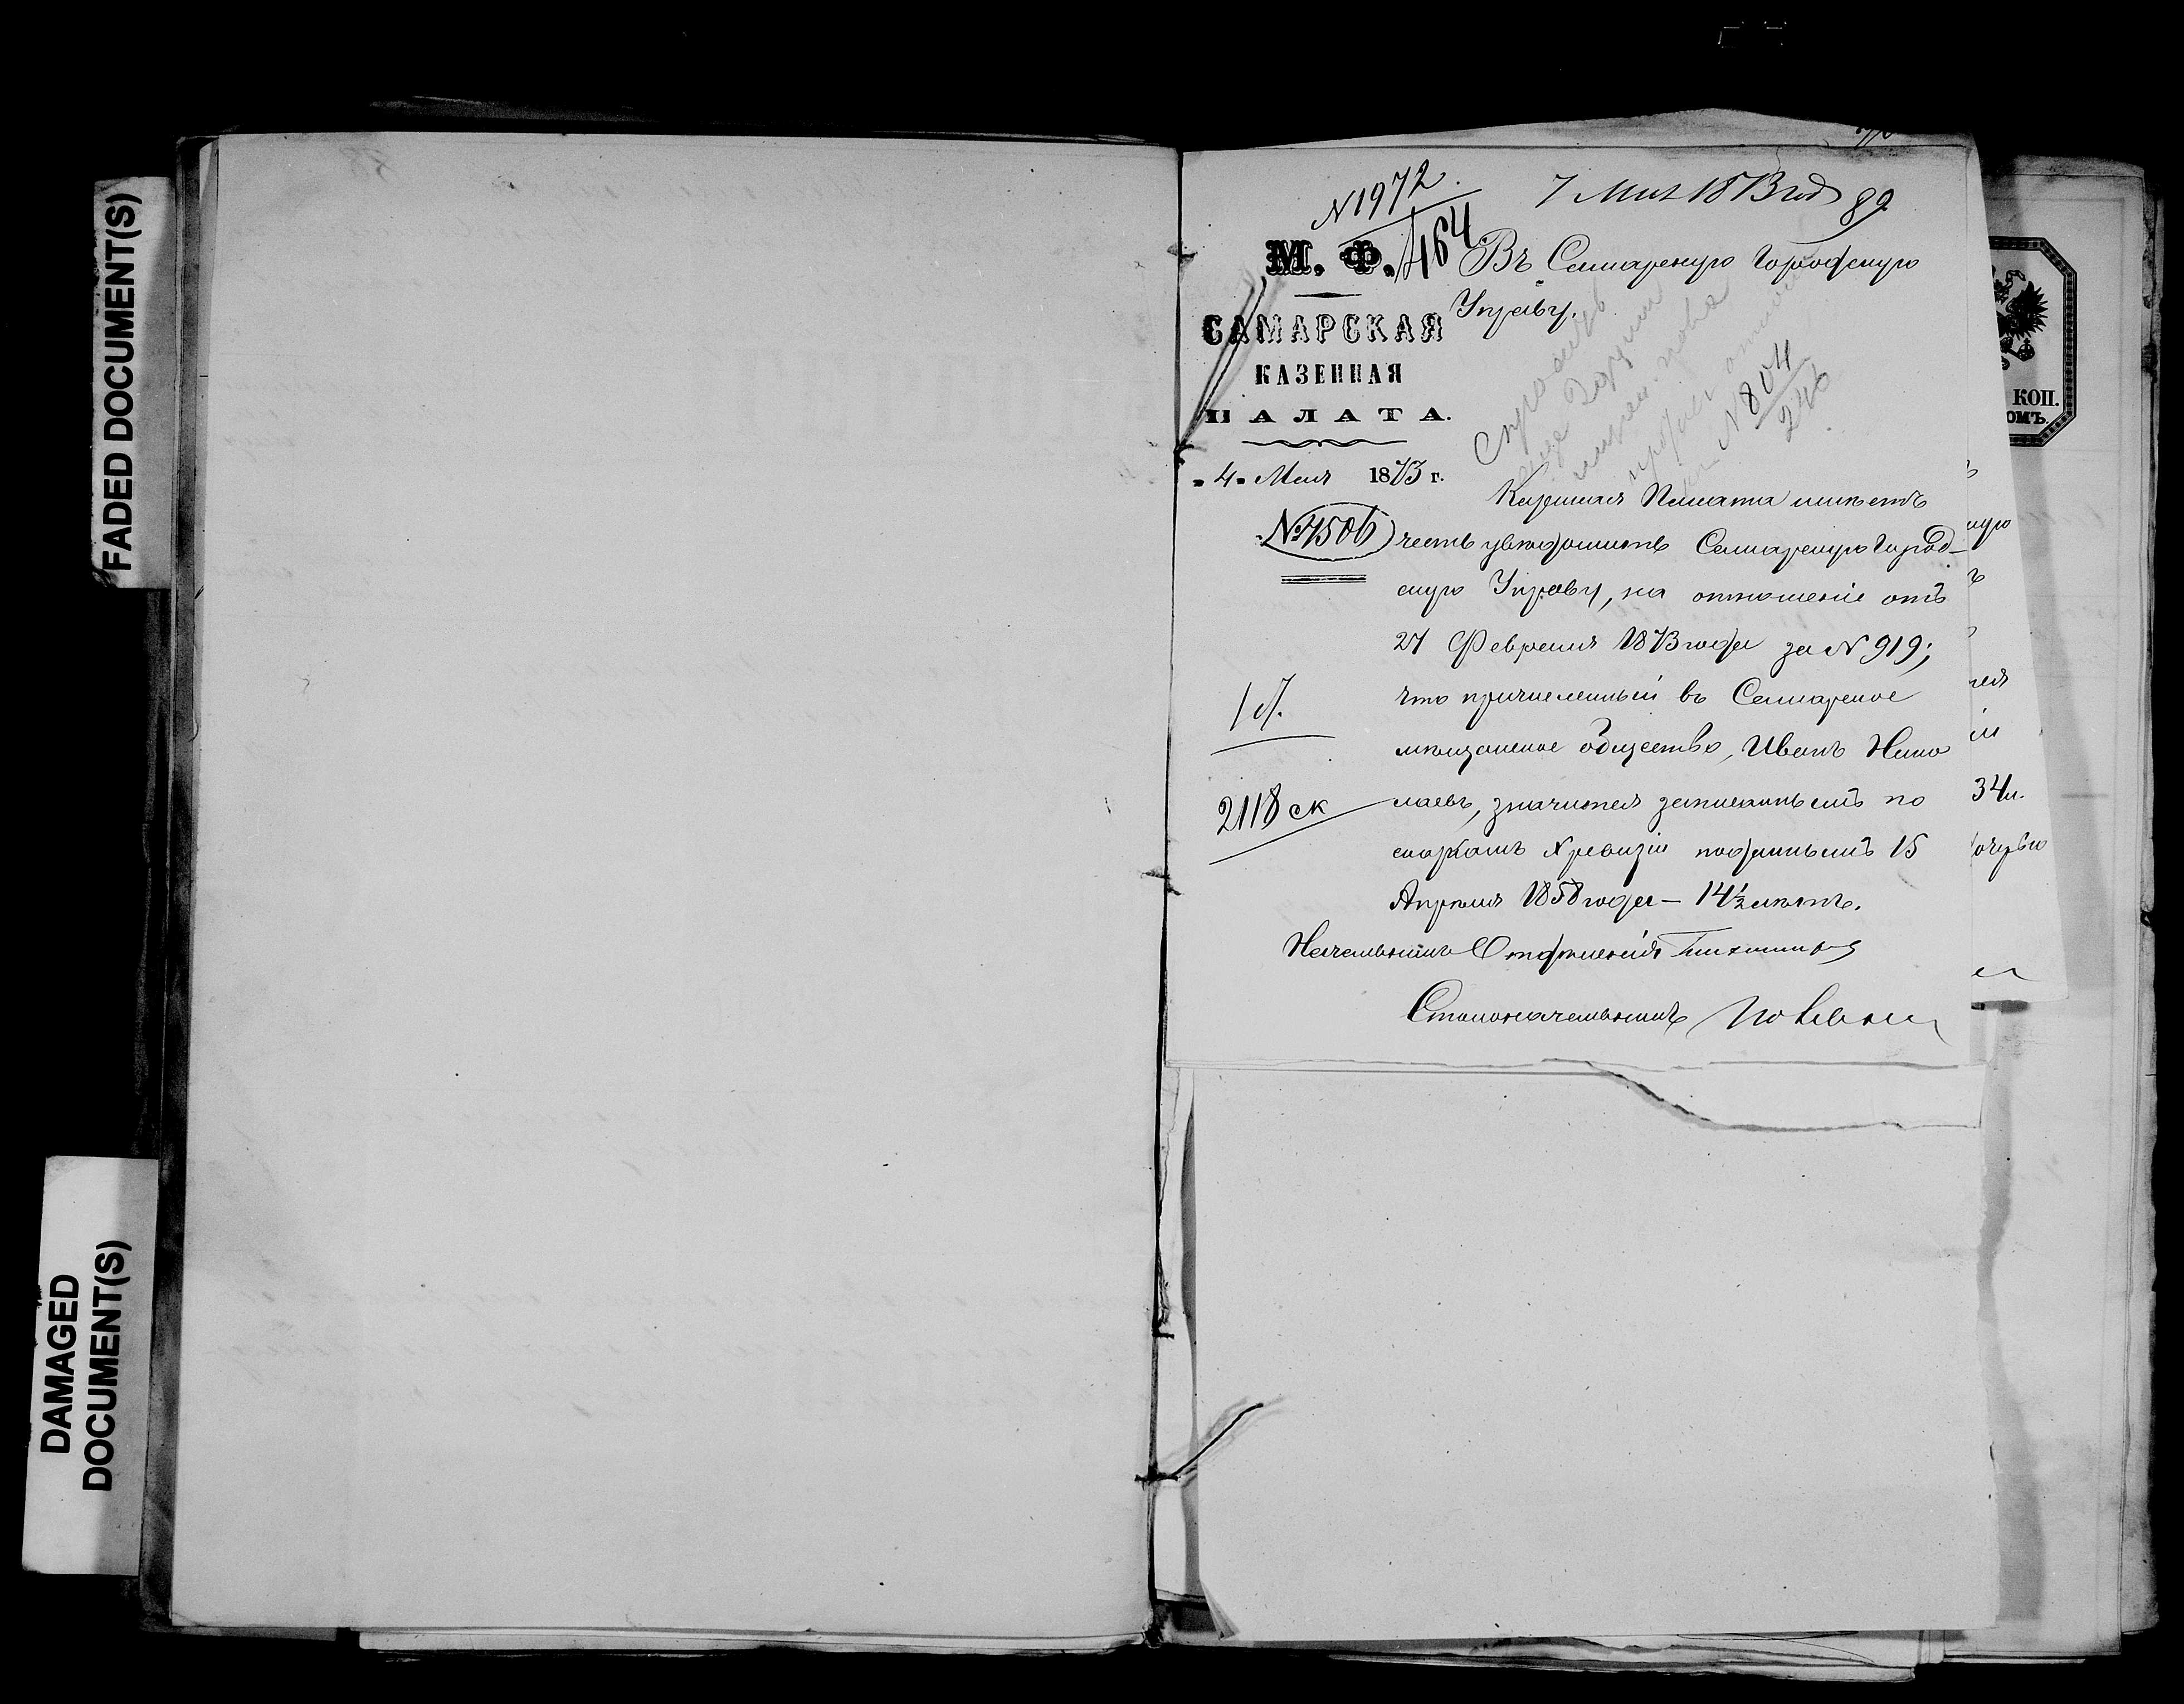 FADED DOCUMENT(S)
DAMAGED
DOCUMENT(S)
N 1972.
464
7 Мая 1873 год
89
М. Ф.
САМАРСКАЯ
КАЗЕННАЯ
ПАЛАТА.
4 Мая 1873 г.
№ 4506
Въ Самарскую Городскую
Управу.
N 804
246
Казенная Палата имѣетъ
честь увѣдомить Самарскую Город-
скую Управу, на отношеніе отъ
27 Февраля 1873 года за N 919;
что причисленный въ Самарское
мѣщанское общество, Иванъ Нико
лаевъ, значится записаннымъ по
сказкамъ X ревизіи поданнымъ 15
Апрѣля 1858 года – 14½ лѣтъ.
2118 ск
Начальникъ Отдѣленія
Столоначальникъ
КОП.
34